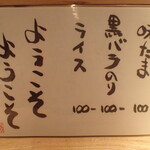 味たま 100-
黒バラのり 100-
ライス 100-
ようこそ
ようこそ